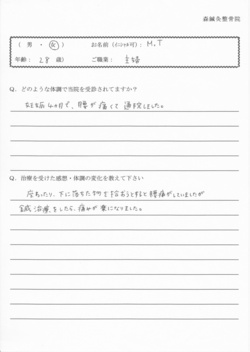 森鍼灸整骨院
( 男 ・ 女 ) お名前(イニシャル可): M.T
年齢: 28 歳) ご職業: 主婦
Q. どのような体調で当院を受診されてますか?
妊娠4ヵ月で、腰が痛くて通院しました。
Q. 治療を受けた感想・体調の変化を教えて下さい
座ったり、下に落ちた物を拾おうとすると腰痛がしていましたが
鍼治療をしたら、痛みが楽になりました。